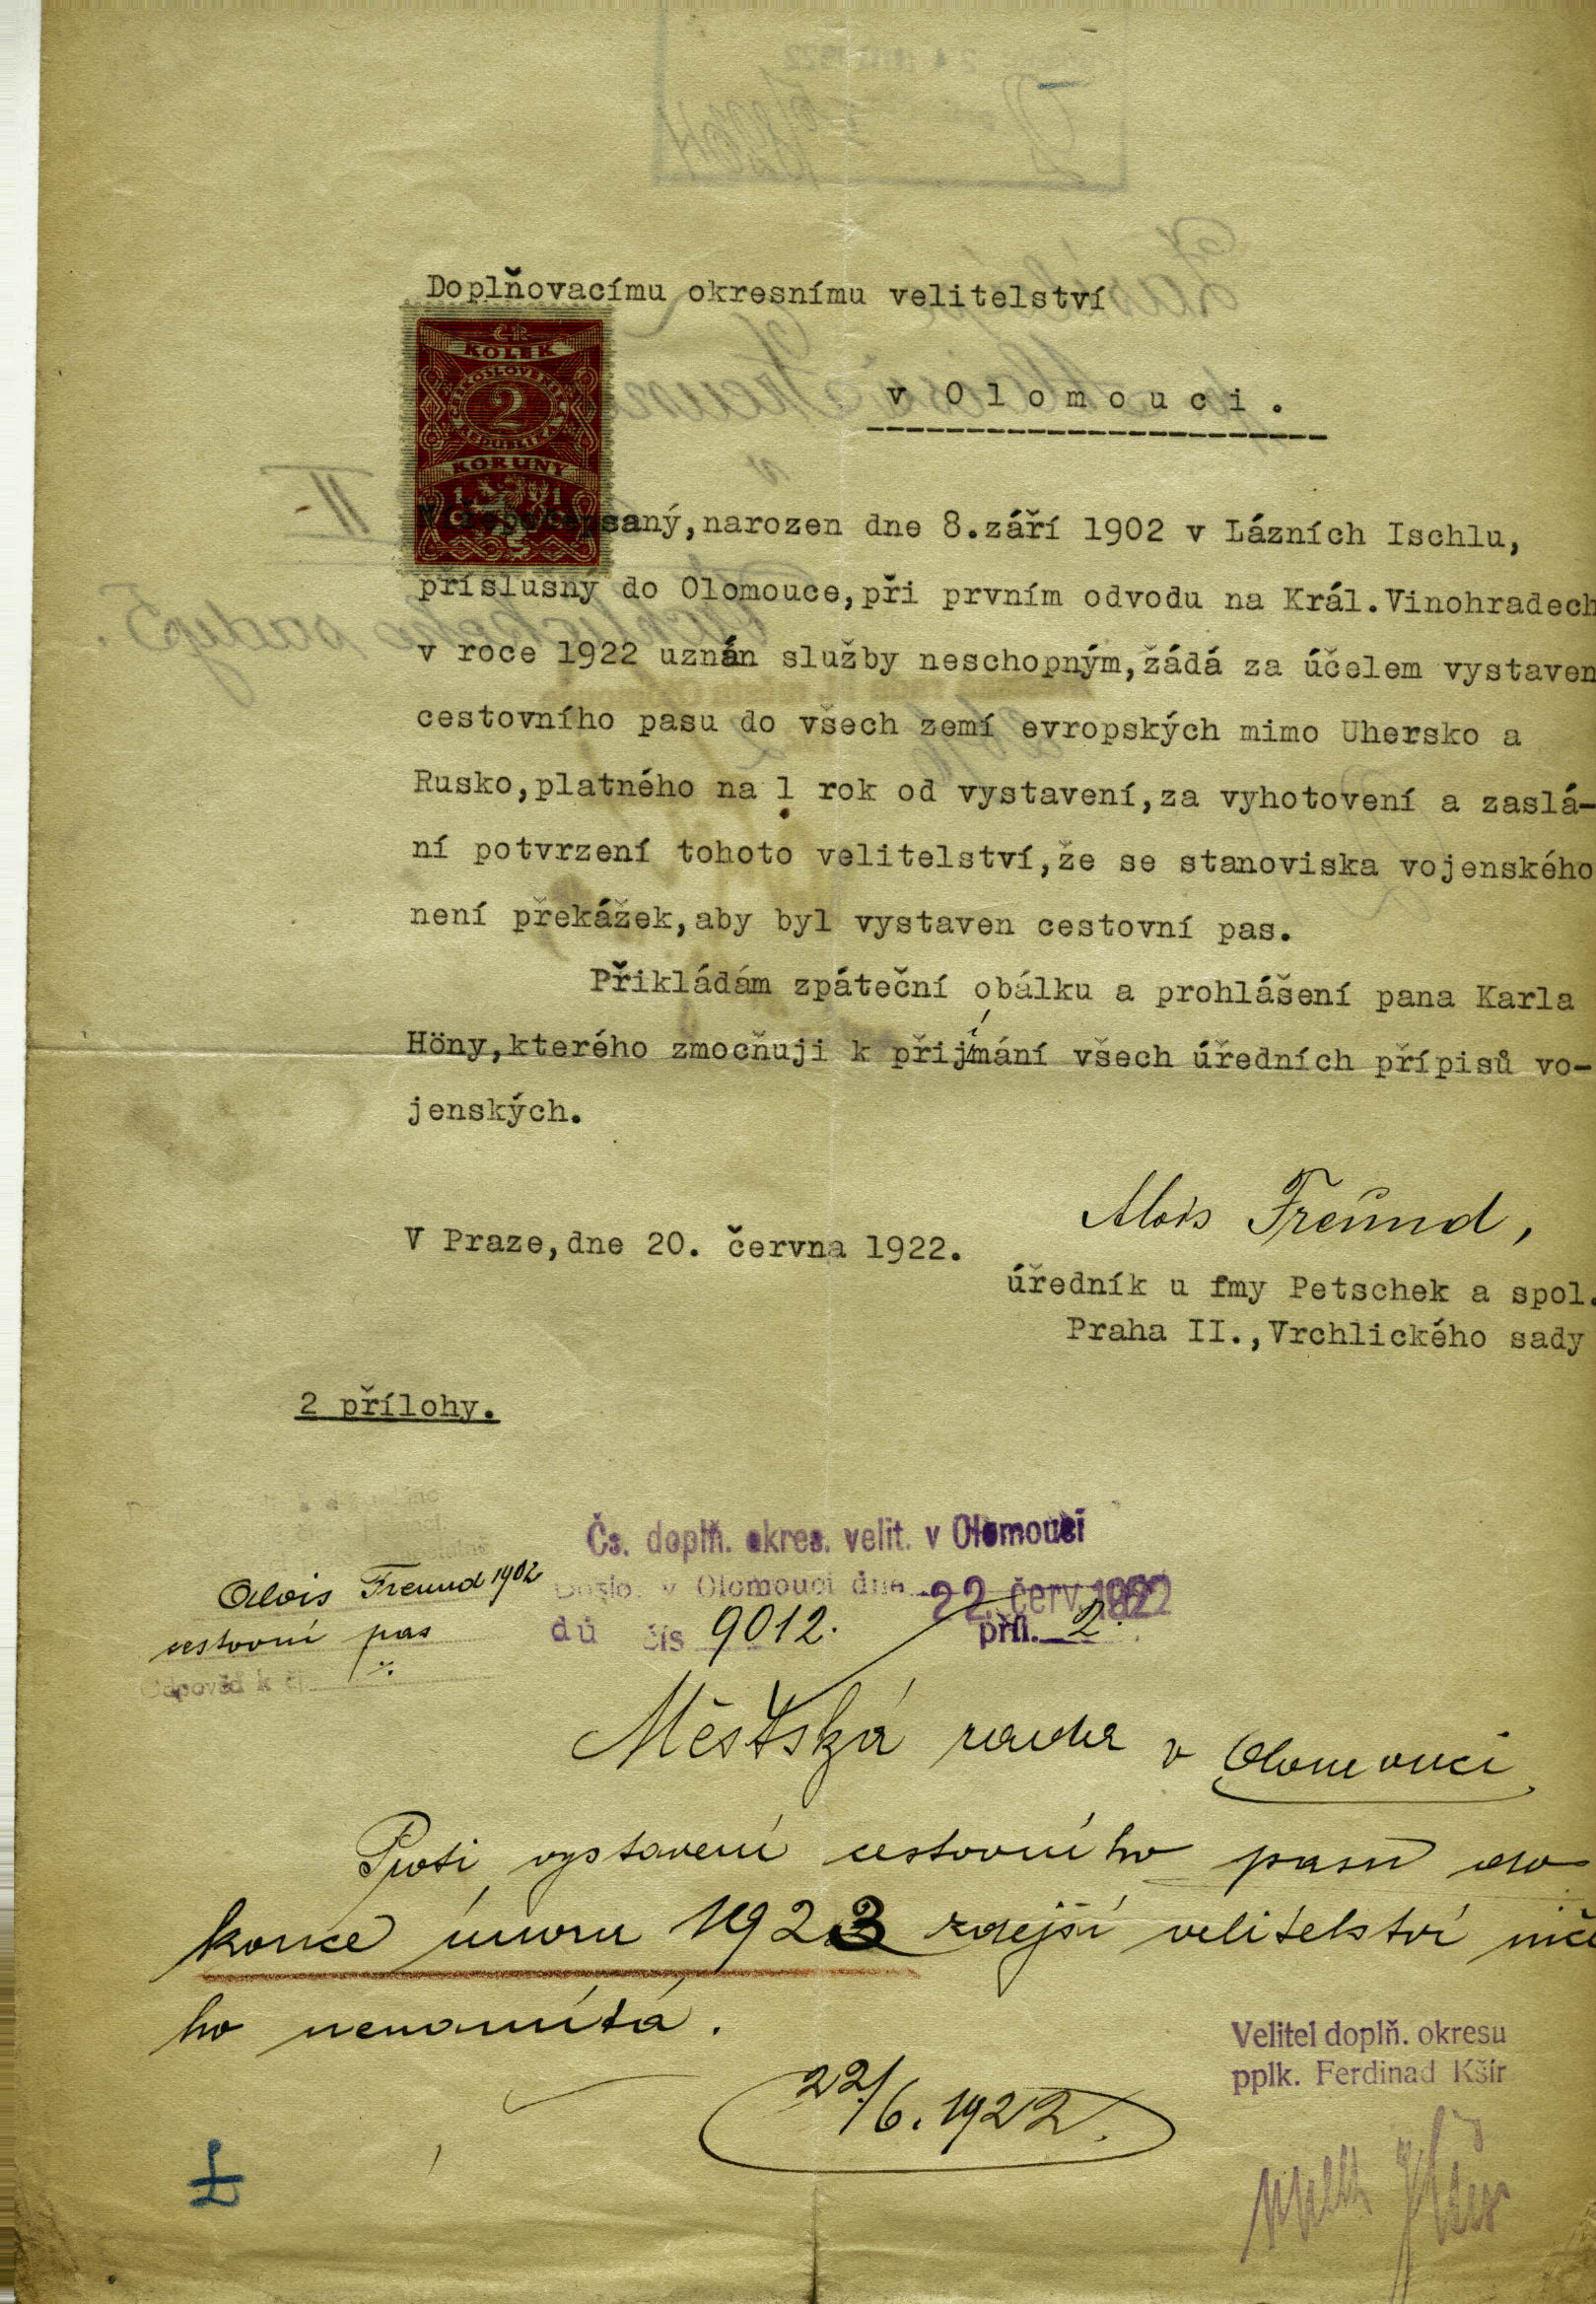 Doplňovacímu okresnímu velitelství
v Olomouci.
ČR
KOLEK
2
KORUNY
saný, narozen dne 8.září 1902 v Lázních Ischlu,
příslušný do Olomouce, při prvním odvodu na Král.Vinohradech
v roce 1922 uznán služby neschopným, žádá za účelem vystaven
cestovního pasu do všech zemí evropských mimo Uhersko a
Rusko, platného na 1 rok od vystavení, za vyhotovení a zaslá-
ní potvrzení tohoto velitelství, že se stanoviska vojenského
není překážek, aby byl vystaven cestovní pas.
Přikládám zpáteční obálku a prohlášení pana Karla
Höny, kterého zmocňuji k přijímání všech úředních přípisů vo-
jenských.
Alois Freund,
V Praze, dne 20. června 1922.
úředník u fmy Petschek a spol.
Praha II., Vrchlického sady
2 přílohy.
Čs. doplň. okres. velit. v Olomouci
Alois Freund 1902
Došlo v Olomouci dne 22. červ. 1922
cestovní pas
dů čís 9012. příl. 2.
Odpověd k čj
Městská rada v Olomouci
Proti vystavení cestovního pasu do
konce února 1923 zdejší velitelství niče
ho nenamítá.
Velitel doplň. okresu
pplk. Ferdinad Kšír
22/6. 1922.
pplk Kšír